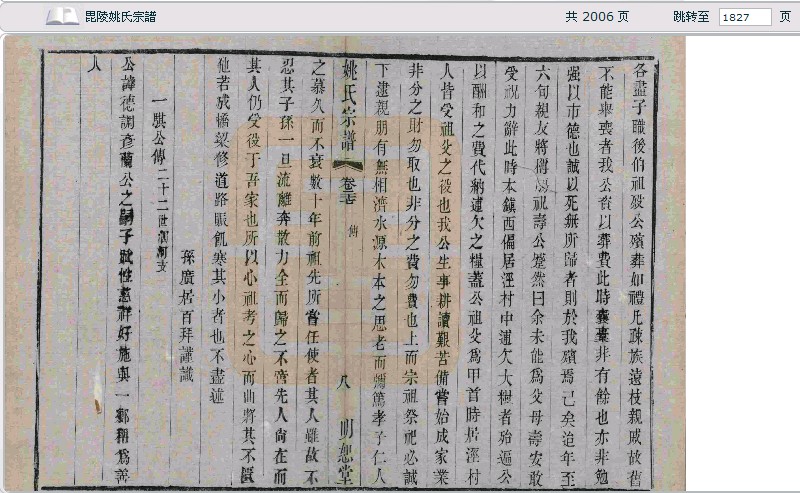 毘陵姚氏宗譜
共 2006 页
跳转至 1827 页
各盡子職後伯祖歿公殯葬如禮凡疎族遠枝親戚故舊
不能舉喪者我公資以葬費此時囊橐非有餘也亦非勉
強以市德也誠以死無所歸者則於我殯焉已矣迨年至
六旬親友將樽祝壽公蹙然曰余未能爲父母壽安敢
受祝力辭此時本鎮西偏居湮村中逋欠大糧者殆遍公
以酬和之費代納逋欠之糧蓋公祖父爲甲首時居湮村
人皆受祖父之役也我公生事耕讀艱苦備嘗始成家業
非分之財勿取也非分之費勿費也上而宗祖祭祀必誠
下逮親朋有無相濟水源木本之思老而彌篤孝子仁人
姚氏宗譜 卷 傳 八 明恕堂
之慕久而不衰數十年前祖先所嘗任使者其人雖故不
忍其子孫一旦流離奔散力全而歸之不啻先人尚在而
其人仍受役于吾家也所以心祖考之心而曲將其不匱
他若成橋梁修道路賑飢寒其小者也不盡述
孫廣居百拜謹識
一騏公傳二十二世個河支
公諱德調彥蘭公之嗣子賦性慈祥好施與一鄉稱爲善
人